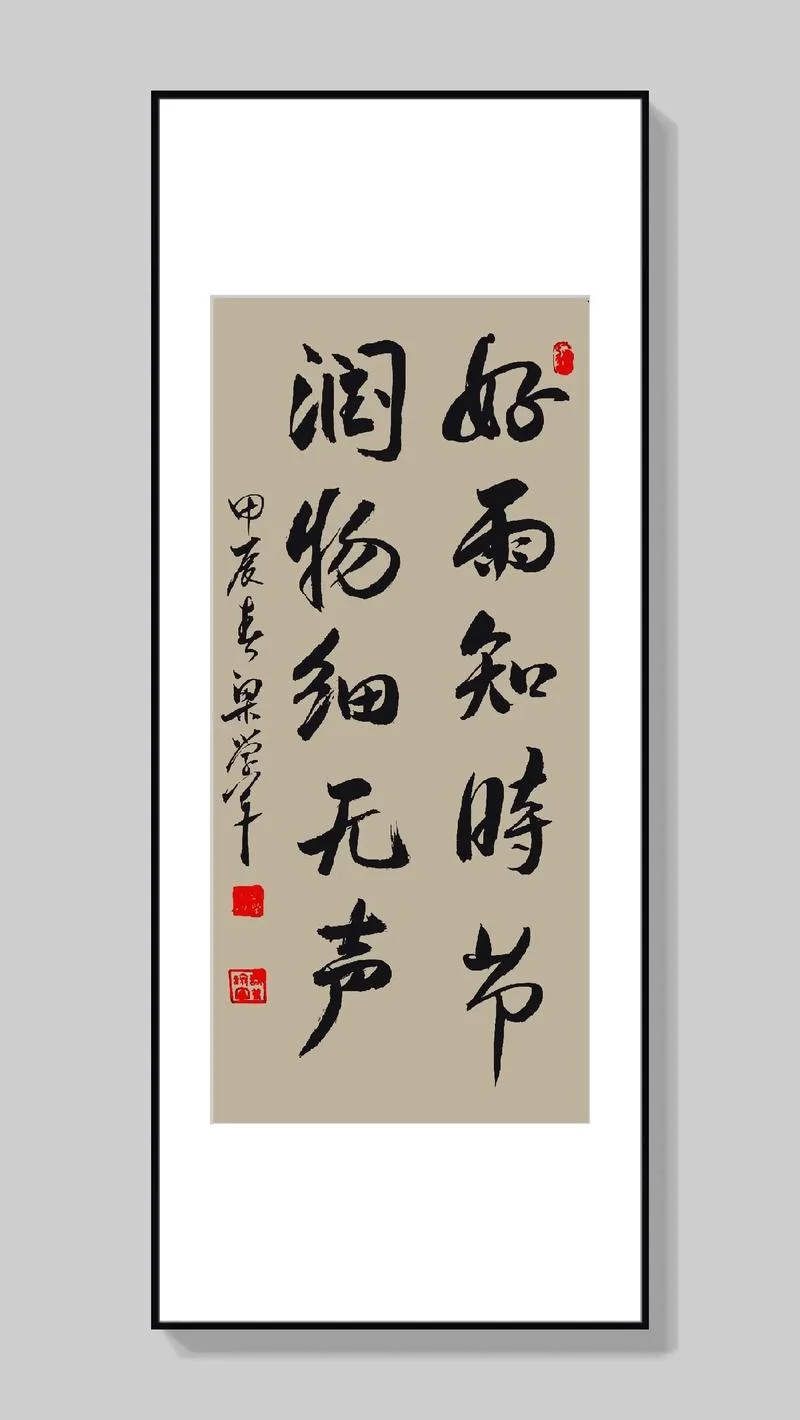 好雨知時节
润物细无声
甲辰春梁学军